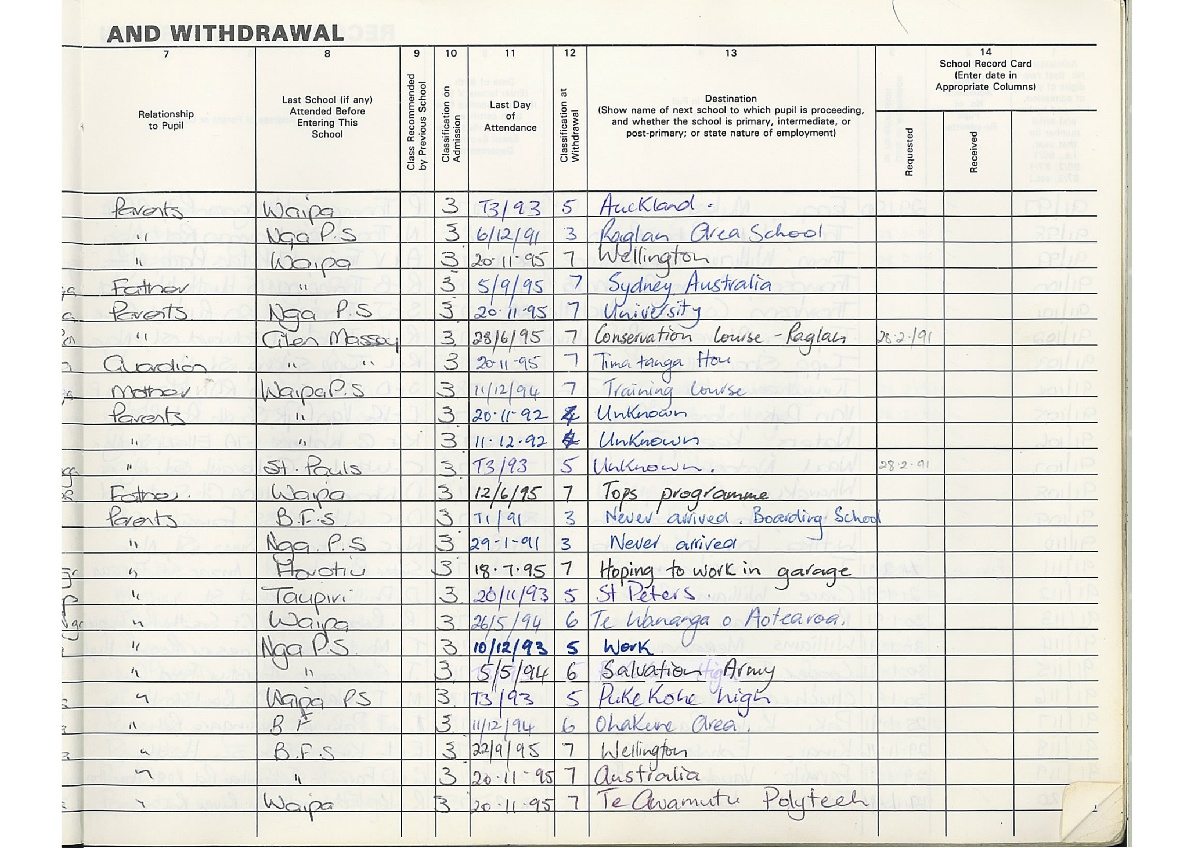 AND WITHDRAWAL
7 8 9 10 11 12 13 14
Relationship to Pupil
Last School (if any) Attended Before Entering This School
Class Recommended by Previous School
Classification on Admission
Last Day of Attendance
Classification at Withdrawal
Destination (Show name of next school to which pupil is proceeding, and whether the school is primary, intermediate, or post-primary; or state nature of employment)
School Record Card (Enter date in Appropriate Columns)
Requested
Received
Parents Waipa 3 T3/93 5 Auckland.
" Nga P.S 3 6/12/91 3 Raglan Area School
" Waipa 3 20-11-95 7 Wellington
Father " 3 5/9/95 7 Sydney Australia
Parents Nga P.S 3 20-11-95 7 University
" Glen Massey 3 28/6/95 7 Conservation Course - Raglan 28-2-/91
Guardian " " 3 20-11-95 7 Tima tanga Hou
Mother Waipa P.S 3 11/12/94 7 Training Course
Parents " 3 20-11-92 4 Unknown
" " 3 11-12-92 4 Unknown
" St. Pauls 3 T3/93 5 Unknown. 28-2-91
Father. Waipa 3 12/6/95 7 Tops programme
Parents B.F.S 3 T1/91 3 Never arrived. Boarding School
" Nga. P.S 3 29-1-91 3 Never arrived
" Horotiu 3 18-7-95 7 Hoping to work in garage
" Taupiri 3 20/11/93 5 St Peters.
" Waipa 3 26/5/94 6 Te Wananga o Aotearoa.
" Nga P.S. 3 10/12/93 5 Work
" " 3 5/5/94 6 Salvation Army
" Waipa PS 3 T3/93 5 Pukekohe high
" B F 3 11/12/94 6 Ohakune Area.
" B.F.S 3 22/9/95 7 Wellington
" " 3 20-11-95 7 Australia
" Waipa 3 20-11-95 7 Te Awamutu Polytech